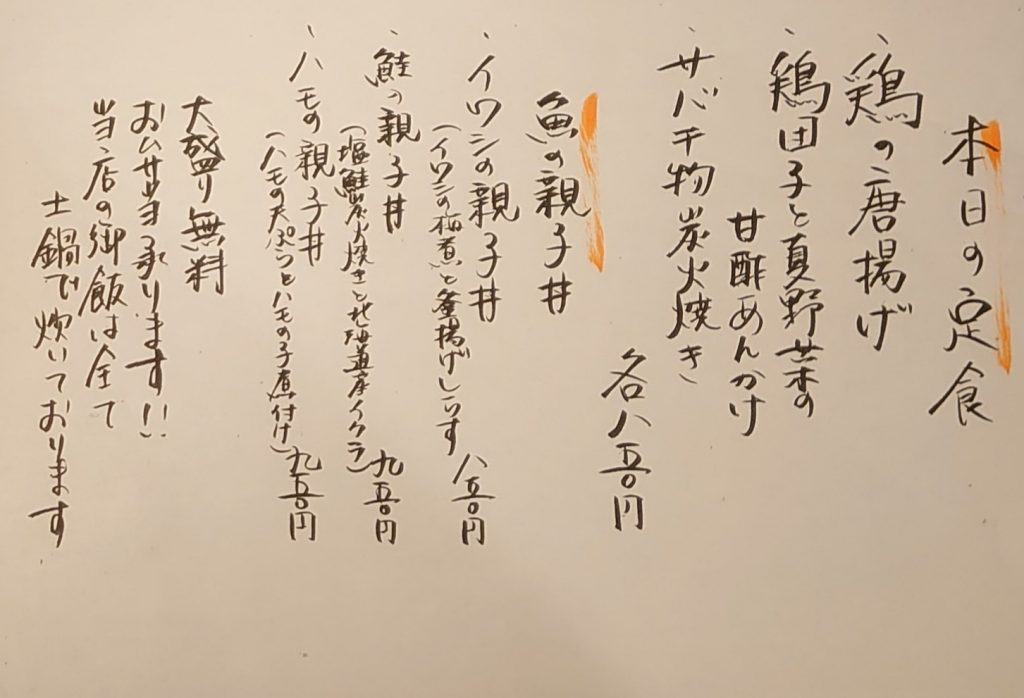 本日の定食
、鶏の唐揚げ
、鶏団子と夏野菜の
甘酢あんかけ
、サバ干物炭火焼き
各八五〇円
魚の親子丼
、イワシの親子丼
(イワシの梅煮と釜揚げしらす 八五〇円
、鮭の親子丼
(塩鮭炭火焼きと北海道産イクラ) 九五〇円
、ハモの親子丼
(ハモの天ぷらとハモの子煮付け) 九五〇円
大盛り無料
おムサヨ承ります!!
当店の御飯は全て
土鍋で炊いております